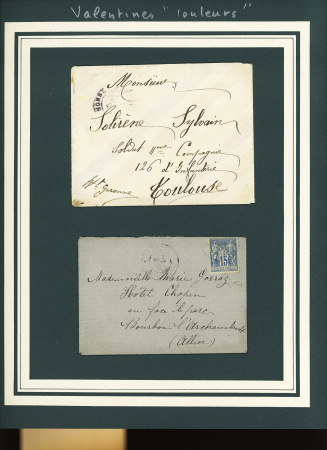 Valentines "couleurs"
Monsieur
Solirène Sylvain
Soldat 11eme Compagnie
126 d'Infanterie
Toulouse
Hte Garonne
15
Mademoiselle Marie
Hôtel Chopin
en face le parc
Bourbon l'Archambault
(Allier)